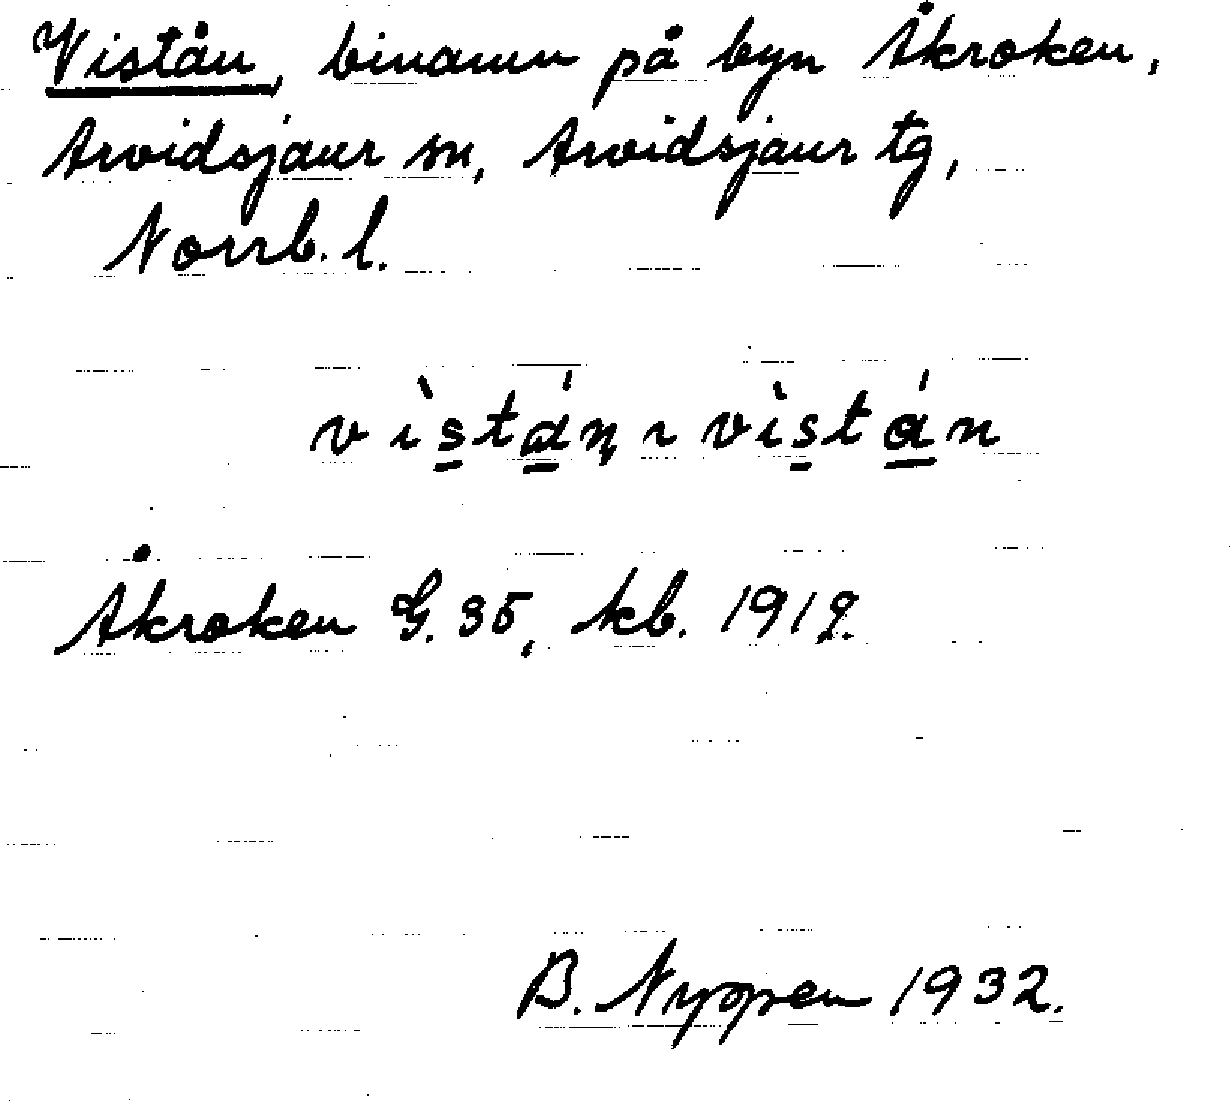 Vistån, binamn på byn Åkroken,
Arvidsjaur sn, Arvidsjaur tg,
Norrb. l.
vìstán̥ ~ vìstán
Åkroken G. 35, kb. 1919.
B. Nyppen 1932.